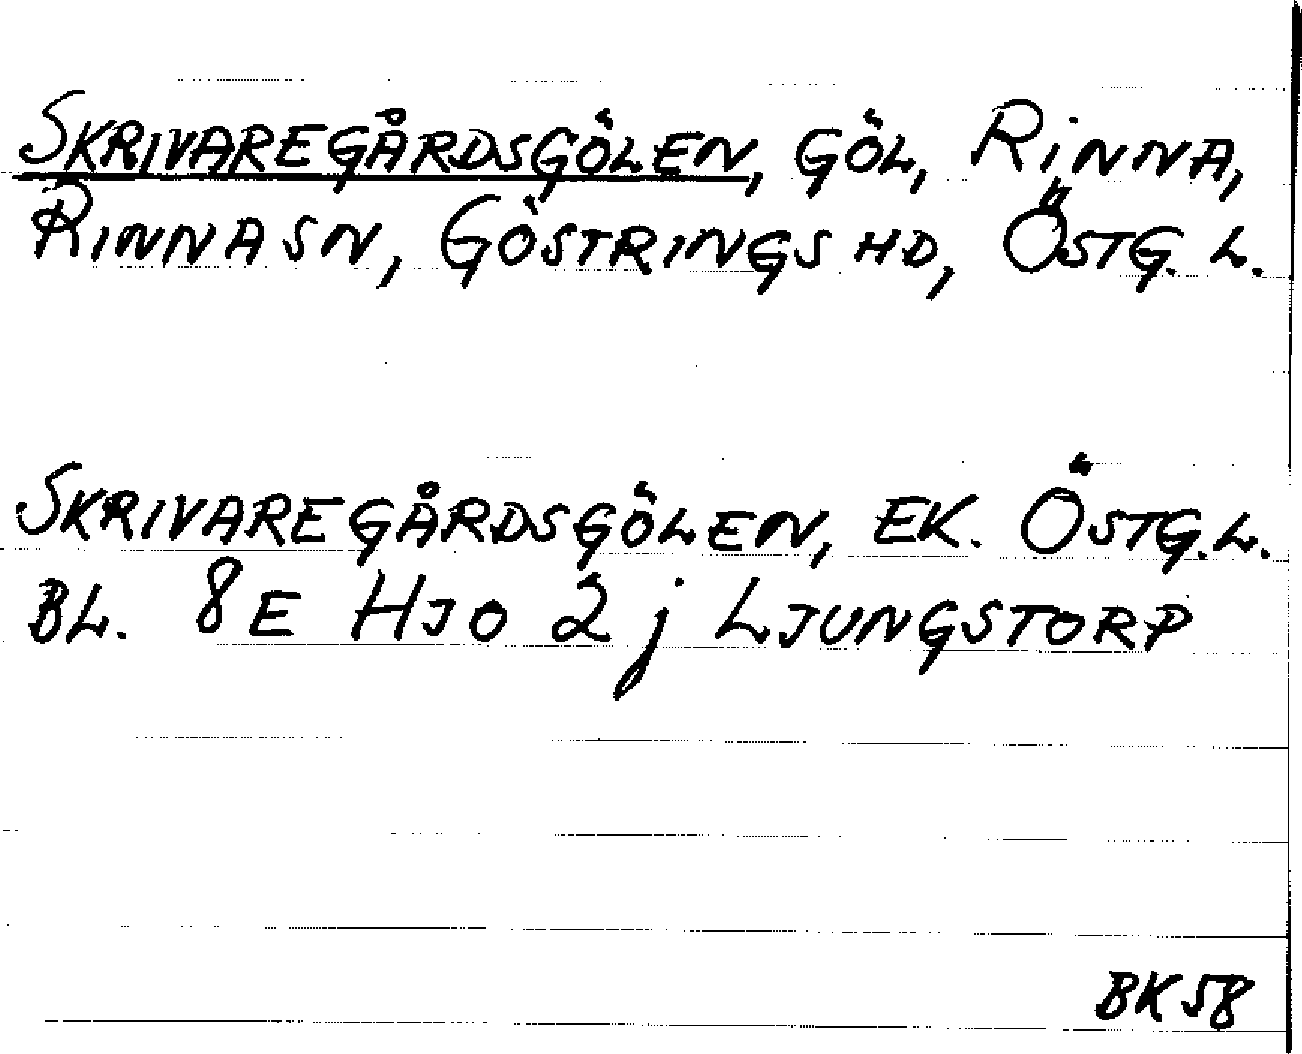 SKRIVAREGÅRDSGÖLEN, GÖL, RINNA,
RINNA SN, GÖSTRINGS HD, ÖSTG. L.
SKRIVAREGÅRDSGÖLEN, EK. ÖSTG. L.
BL. 8E HJO 2j LJUNGSTORP
BK58